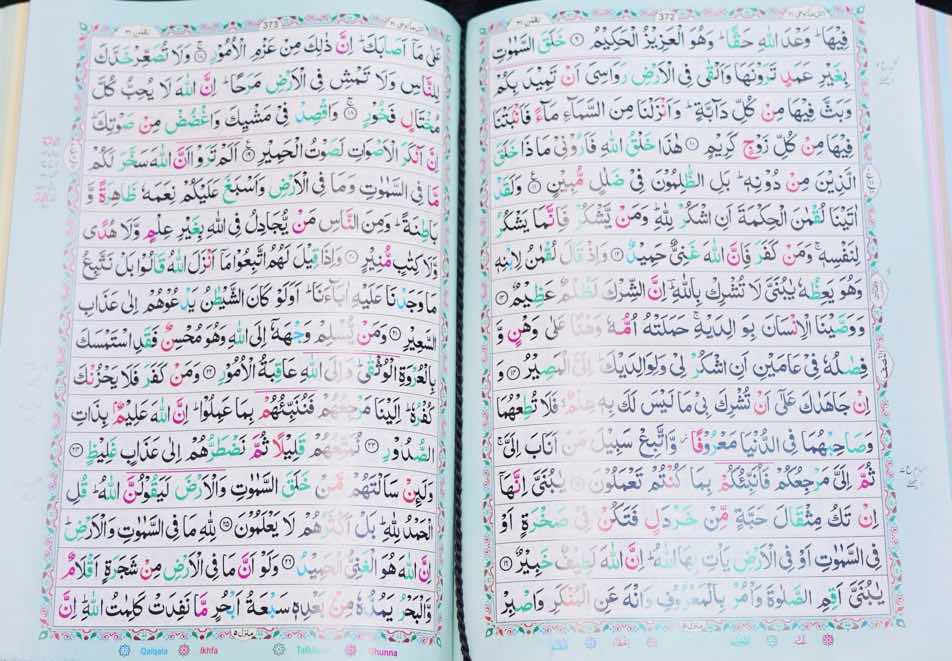 لقمٰن ٣١
372
اتل ما اوحی ٢١
فِيۡهَا ؕ وَعۡدَ اللّٰهِ حَقًّا ؕ وَهُوَ الۡعَزِيۡزُ الۡحَكِيۡمُ ﴿۹﴾ خَلَقَ السَّمٰوٰتِ
بِغَيۡرِ عَمَدٍ تَرَوۡنَهَا وَاَلۡقٰى فِى الۡاَرۡضِ رَوَاسِىَ اَنۡ تَمِيۡدَ بِكُمۡ
وَبَثَّ فِيۡهَا مِنۡ كُلِّ دَآبَّةٍ ؕ وَاَنۡزَلۡنَا مِنَ السَّمَآءِ مَآءً فَاَنۡۢبَتۡنَا
فِيۡهَا مِنۡ كُلِّ زَوۡجٍ كَرِيۡمٍ ﴿۱۰﴾ هٰذَا خَلۡقُ اللّٰهِ فَاَرُوۡنِىۡ مَاذَا خَلَقَ
الَّذِيۡنَ مِنۡ دُوۡنِهٖ ؕ بَلِ الظّٰلِمُوۡنَ فِىۡ ضَلٰلٍ مُّبِيۡنٍ ﴿۱۱﴾ وَلَقَدۡ
اٰتَيۡنَا لُقۡمٰنَ الۡحِكۡمَةَ اَنِ اشۡكُرۡ لِلّٰهِ ؕ وَمَنۡ يَّشۡكُرۡ فَاِنَّمَا يَشۡكُرُ
لِنَفۡسِهٖ ۚ وَمَنۡ كَفَرَ فَاِنَّ اللّٰهَ غَنِىٌّ حَمِيۡدٌ ﴿۱۲﴾ وَاِذۡ قَالَ لُقۡمٰنُ لِابۡنِهٖ
وَهُوَ يَعِظُهٗ يٰبُنَىَّ لَا تُشۡرِكۡ بِاللّٰهِ ؕ اِنَّ الشِّرۡكَ لَظُلۡمٌ عَظِيۡمٌ ﴿۱۳﴾
وَوَصَّيۡنَا الۡاِنۡسَانَ بِوَالِدَيۡهِ ۚ حَمَلَتۡهُ اُمُّهٗ وَهۡنًا عَلٰى وَهۡنٍ وَّ
فِصٰلُهٗ فِىۡ عَامَيۡنِ اَنِ اشۡكُرۡ لِىۡ وَلِوَالِدَيۡكَ ؕ اِلَىَّ الۡمَصِيۡرُ ﴿۱۴﴾ وَ
اِنۡ جَاهَدٰكَ عَلٰٓى اَنۡ تُشۡرِكَ بِىۡ مَا لَيۡسَ لَكَ بِهٖ عِلۡمٌ ۙ فَلَا تُطِعۡهُمَا
وَصَاحِبۡهُمَا فِى الدُّنۡيَا مَعۡرُوۡفًا ۫ وَّاتَّبِعۡ سَبِيۡلَ مَنۡ اَنَابَ اِلَىَّ ۚ
ثُمَّ اِلَىَّ مَرۡجِعُكُمۡ فَاُنَبِّئُكُمۡ بِمَا كُنۡتُمۡ تَعۡمَلُوۡنَ ﴿۱۵﴾ يٰبُنَىَّ اِنَّهَاۤ
اِنۡ تَكُ مِثۡقَالَ حَبَّةٍ مِّنۡ خَرۡدَلٍ فَتَكُنۡ فِىۡ صَخۡرَةٍ اَوۡ
فِى السَّمٰوٰتِ اَوۡ فِى الۡاَرۡضِ يَاۡتِ بِهَا اللّٰهُ ؕ اِنَّ اللّٰهَ لَطِيۡفٌ خَبِيۡرٌ ﴿۱۶﴾
يٰبُنَىَّ اَقِمِ الصَّلٰوةَ وَاۡمُرۡ بِالۡمَعۡرُوۡفِ وَانۡهَ عَنِ الۡمُنۡكَرِ وَاصۡبِرۡ
منزل ٥
لقمٰن ٣١
373
اتل ما اوحی ٢١
عَلٰى مَاۤ اَصَابَكَ ؕ اِنَّ ذٰلِكَ مِنۡ عَزۡمِ الۡاُمُوۡرِ ﴿۱۷﴾ وَلَا تُصَعِّرۡ خَدَّكَ
لِلنَّاسِ وَلَا تَمۡشِ فِى الۡاَرۡضِ مَرَحًا ؕ اِنَّ اللّٰهَ لَا يُحِبُّ كُلَّ
مُخۡتَالٍ فَخُوۡرٍ ﴿۱۸﴾ وَاقۡصِدۡ فِىۡ مَشۡيِكَ وَاغۡضُضۡ مِنۡ صَوۡتِكَ ؕ
اِنَّ اَنۡكَرَ الۡاَصۡوَاتِ لَصَوۡتُ الۡحَمِيۡرِ ﴿۱۹﴾ اَلَمۡ تَرَوۡا اَنَّ اللّٰهَ سَخَّرَ لَكُمۡ
مَّا فِى السَّمٰوٰتِ وَمَا فِى الۡاَرۡضِ وَاَسۡبَغَ عَلَيۡكُمۡ نِعَمَهٗ ظَاهِرَةً وَّ
بَاطِنَةً ؕ وَمِنَ النَّاسِ مَنۡ يُّجَادِلُ فِى اللّٰهِ بِغَيۡرِ عِلۡمٍ وَّلَا هُدًى
وَّلَا كِتٰبٍ مُّنِيۡرٍ ﴿۲۰﴾ وَاِذَا قِيۡلَ لَهُمُ اتَّبِعُوۡا مَاۤ اَنۡزَلَ اللّٰهُ قَالُوۡا بَلۡ نَتَّبِعُ
مَا وَجَدۡنَا عَلَيۡهِ اٰبَآءَنَا ؕ اَوَلَوۡ كَانَ الشَّيۡطٰنُ يَدۡعُوۡهُمۡ اِلٰى عَذَابِ
السَّعِيۡرِ ﴿۲۱﴾ وَمَنۡ يُّسۡلِمۡ وَجۡهَهٗۤ اِلَى اللّٰهِ وَهُوَ مُحۡسِنٌ فَقَدِ اسۡتَمۡسَكَ
بِالۡعُرۡوَةِ الۡوُثۡقٰى ؕ وَاِلَى اللّٰهِ عَاقِبَةُ الۡاُمُوۡرِ ﴿۲۲﴾ وَمَنۡ كَفَرَ فَلَا يَحۡزُنۡكَ
كُفۡرُهٗ ؕ اِلَيۡنَا مَرۡجِعُهُمۡ فَنُنَبِّئُهُمۡ بِمَا عَمِلُوۡا ؕ اِنَّ اللّٰهَ عَلِيۡمٌۢ بِذَاتِ
الصُّدُوۡرِ ﴿۲۳﴾ نُمَتِّعُهُمۡ قَلِيۡلًا ثُمَّ نَضۡطَرُّهُمۡ اِلٰى عَذَابٍ غَلِيۡظٍ ﴿۲۴﴾
وَلَئِنۡ سَاَلۡتَهُمۡ مَّنۡ خَلَقَ السَّمٰوٰتِ وَالۡاَرۡضَ لَيَقُوۡلُنَّ اللّٰهُ ؕ قُلِ
الۡحَمۡدُ لِلّٰهِ ؕ بَلۡ اَكۡثَرُهُمۡ لَا يَعۡلَمُوۡنَ ﴿۲۵﴾ لِلّٰهِ مَا فِى السَّمٰوٰتِ وَالۡاَرۡضِ ؕ
اِنَّ اللّٰهَ هُوَ الۡغَنِىُّ الۡحَمِيۡدُ ﴿۲۶﴾ وَلَوۡ اَنَّ مَا فِى الۡاَرۡضِ مِنۡ شَجَرَةٍ اَقۡلَامٌ
وَّالۡبَحۡرُ يَمُدُّهٗ مِنۡۢ بَعۡدِهٖ سَبۡعَةُ اَبۡحُرٍ مَّا نَفِدَتۡ كَلِمٰتُ اللّٰهِ ؕ اِنَّ
منزل ٥
Qalqala Ikhfa Ghunna